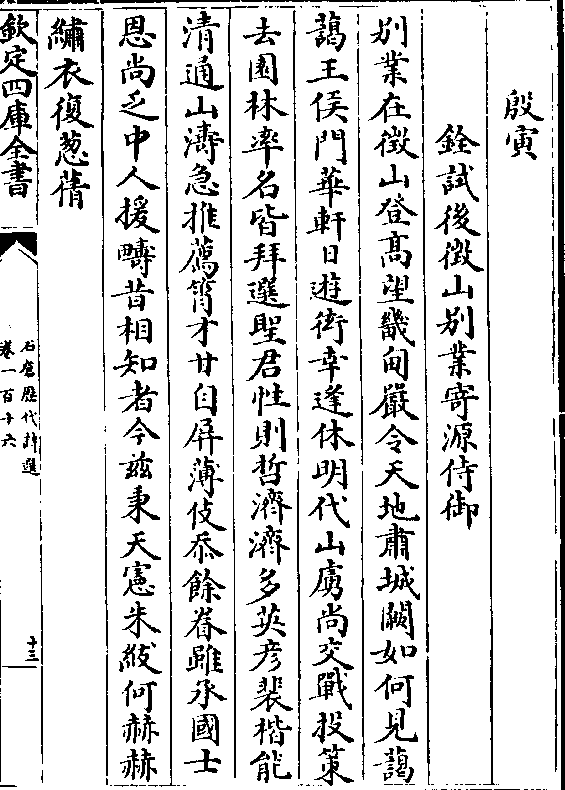 殷寅
銓試後徴山别業寄源侍御
别業在徴山登髙望畿甸嚴令天地肅城闕如何見藹
藹王侯門華軒日遊衒幸逢休明代山虜尚交戰投策
去園林率名皆拜選聖君性則哲濟濟多英彦裴楷能
清通山濤急推薦筲才甘自屏薄伎忝餘眷雖承國士
恩尚乏中人援疇昔相知者今兹秉天憲朱紱何赫赫
繡衣復葱蒨
欽定四庫全書
石倉歴代詩選
卷一百十六
十三